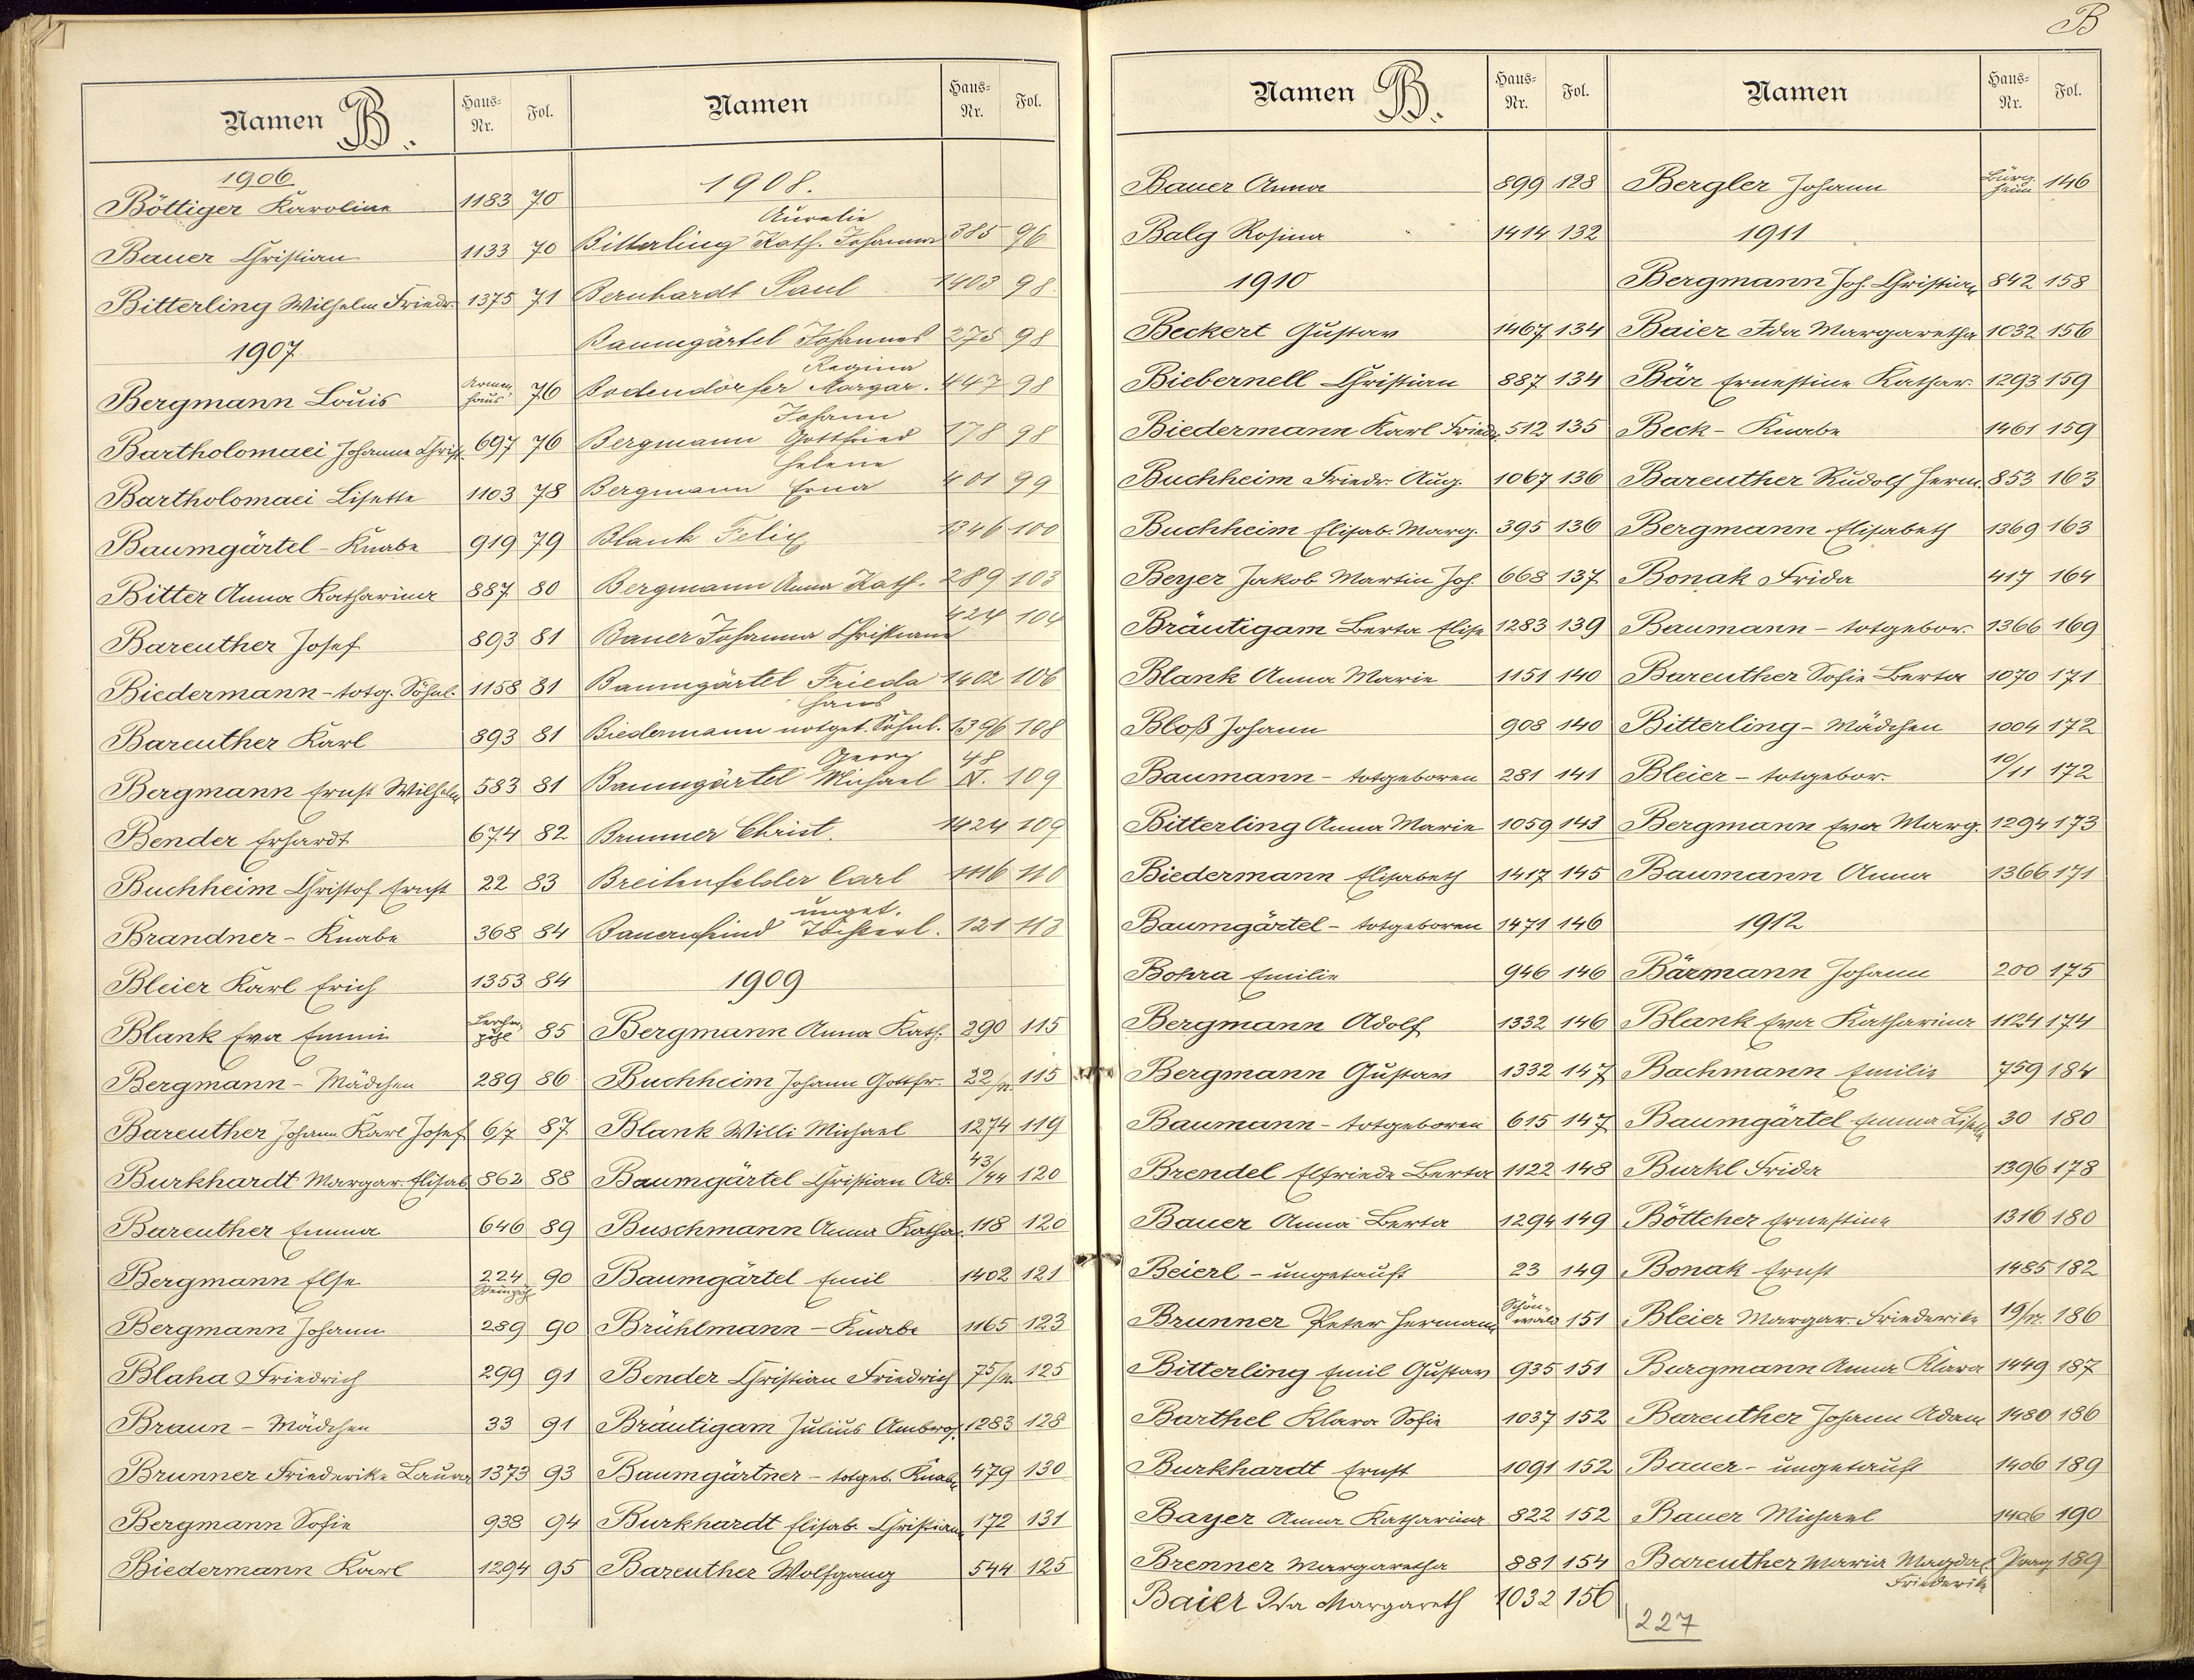 B
Namen B. Haus-Nr. Fol.
1906
Böttiger Karoline 1183 70
Bauer Christian 1133 70
Bitterling Wilhelm Friedr. 1375 71
1907
Bergmann Louis Armenhaus 76
Bartholomaei Johanna Christ. 697 76
Bartholomaei Lisette 1103 78
Baumgärtel - Knabe 919 79
Bitter Anna Katharina 887 80
Bareuther Josef 893 81
Biedermann - totg. Söhnl. 1158 81
Bareuther Karl 893 81
Bergmann Ernst Wilhelm 583 81
Bender Erhardt 674 82
Buchheim Christof Ernst 22 83
Brandner - Knabe 368 84
Bleier Karl Erich 1353 84
Blank Eva Emmi 85
Bergmann - Mädchen 289 86
Bareuther Johann Karl Josef 6/7 87
Burkhardt Margar. Elisab. 862 88
Bareuther Emma 646 89
Bergmann Else 224 90
Bergmann Johann 289 90
Blaha Friedrich 299 91
Braun - Mädchen 33 91
Brunner Friederike Laura 1373 93
Bergmann Sofie 938 94
Biedermann Karl 1294 95
Namen Haus-Nr. Fol.
1908.
Aurelie
Bitterling Kath. Johanna 385 96
Bernhardt Paul 1403 98.
Baumgärtel Johannes 275 98
Regina
Bodendörfer Margar. 447 98
Johann
Bergmann Gottfried 178 98
Helene
Bergmann Erna 401 99
Blank Felix 1346 100
Bergmann Anna Kath. 289 103
Bauer Johanna Christiane 424 104
Baumgärtel Frieda 1402 106
Hans
Biedermann notget. Söhnl. 1396 108
Georg 48
Baumgärtel Michael N. 109
Brunner Christ. 1424 109
Breitenfelder Carl 1116 110
unget.
Bauernfeind Töchterl. 121 113
1909
Bergmann Anna Kath. 290 115
Buchheim Johann Gottfr. 22/n. 115
Blank Willi Michael 1274 119
Baumgärtel Christian Ad. 43/44 120
Buschmann Anna Kathar. 118 120
Baumgärtel Emil 1402 121
Brühlmann - Knabe 1165 123
Bender Christian Friedrich 75/n. 125
Bräutigam Julius Ambros. 1283 128
Baumgärtner - totgeb. Knabe 479 130
Burkhardt Elisab. Christiana 172 131
Bareuther Wolfgang 544 125
Namen B. Haus-Nr. Fol.
Bauer Anna 899 128
Balg Rosina 1414 132
1910
Beckert Gustav 1467 134
Biebernell Christian 887 134
Biedermann Karl Friedr. 512 135
Buchheim Friedr. Aug. 1067 136
Buchheim Elisab. Marg. 395 136
Beyer Jakob Martin Joh. 668 137
Bräutigam Berta Elise 1283 139
Blank Anna Marie 1151 140
Bloß Johann 908 140
Baumann - totgeboren 281 141
Bitterling Anna Marie 1059 143
Biedermann Elisabeth 1417 145
Baumgärtel - totgeboren 1471 146
Bohra Emilie 946 146
Bergmann Adolf 1332 146
Bergmann Gustav 1332 147
Baumann - totgeboren 615 147
Brendel Elfriede Berta 1122 148
Bauer Anna Berta 1294 149
Beierl - ungetauft 23 149
Brunner Peter Hermann Schönwald 151
Bitterling Emil Gustav 935 151
Barthel Klara Sofie 1037 152
Burkhardt Ernst 1091 152
Bayer Anna Katharina 822 152
Brenner Margaretha 881 154
Baier Ida Margareth 1032 156
Namen Haus-Nr. Fol.
Bergler Johann Bürgheim 146
1911
Bergmann Joh. Christian 842 158
Baier Ida Margaretha 1032 156
Bär Ernestine Kathar. 1293 159
Beck - Knabe 1461 159
Bareuther Rudolf Herm. 853 163
Bergmann Elisabeth 1369 163
Bonak Frida 417 164
Baumann - totgebor. 1366 169
Bareuther Sofie Berta 1070 171
Bitterling - Mädchen 1004 172
Bleier - totgebor. 10/11 172
Bergmann Eva Marg. 1294 173
Baumann Anna 1366 171
1912
Bärmann Johann 200 175
Blank Eva Katharina 1124 174
Bachmann Emilie 759 184
Baumgärtel Emma Lisette 30 180
Burkl Frida 1396 178
Böttcher Ernestine 1316 180
Bonak Ernst 1485 182
Bleier Margar. Friederike 19/n. 186
Burgmann Anna Klara 1449 187
Bareuther Johann Adam 1480 186
Bauer - ungetauft 1406 189
Bauer Michael 1406 190
Bareuther Maria Magdal. Prag 189
Friederike
227